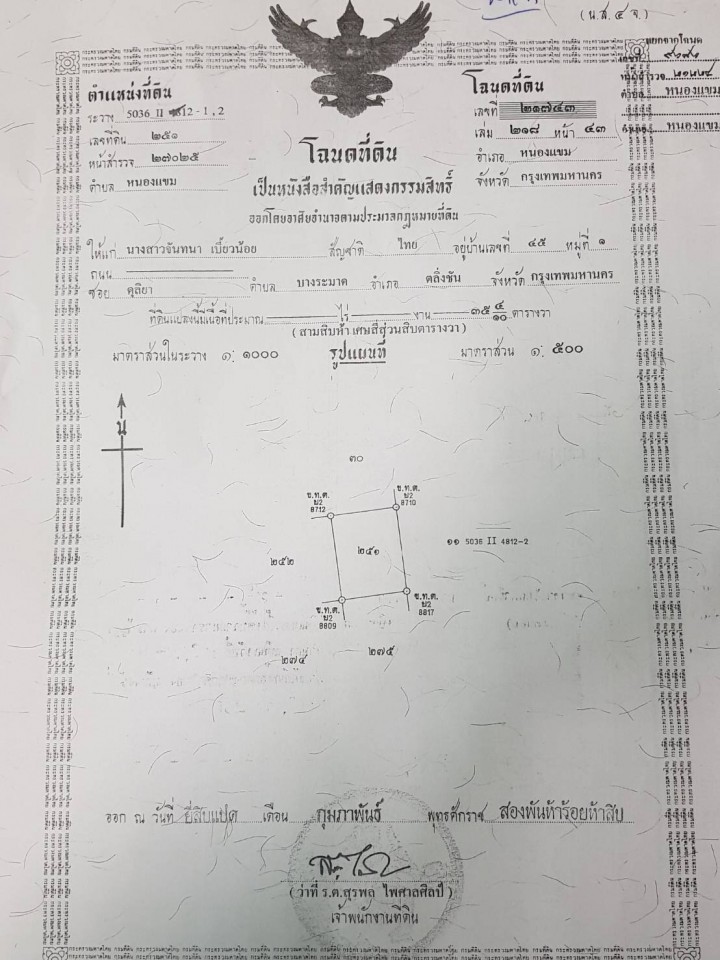 (น.ส.๔ จ.)
แยกจากโฉนด
ตำแหน่งที่ดิน
ระวาง 5036 II 4812-1,2
เลขที่ดิน ๒๕๑
หน้าสำรวจ ๒๗๐๒๕
ตำบล หนองแขม
โฉนดที่ดิน
เลขที่ ๒๑๗๔๓
เล่ม ๒๑๘ หน้า ๔๓
อำเภอ หนองแขม
จังหวัด กรุงเทพมหานคร
หน้าสำรวจ ๒๑๒๒๔
ตำบล หนองแขม
อำเภอ หนองแขม
โฉนดที่ดิน
เป็นหนังสือสำคัญแสดงกรรมสิทธิ์
ออกโดยอาศัยอำนาจตามประมวลกฎหมายที่ดิน
ให้แก่ นางสาวจันทนา เบี้ยวน้อย สัญชาติ ไทย อยู่บ้านเลขที่ ๔๕ หมู่ที่ ๑
ถนน
ซอย ดุลิยา ตำบล บางระมาด อำเภอ ตลิ่งชัน จังหวัด กรุงเทพมหานคร
ที่ดินแปลงนี้มีเนื้อที่ประมาณ ไร่ งาน ๓๕ ๔/๑๐ ตารางวา
(สามสิบห้า เศษสี่ส่วนสิบตารางวา)
มาตราส่วนในระวาง ๑: ๑๐๐๐ รูปแผนที่ มาตราส่วน ๑: ๕๐๐
น
๓๐
ข.ท.ต.
ข2
8712
ข.ท.ต.
ข2
8710
๒๕๒
๒๕๑
๑๑ 5036 II 4812-2
ข.ท.ต.
ข2
8809
ข.ท.ต.
ข2
8817
๒๗๔
๒๗๕
ออก ณ วันที่ ยี่สิบแปด เดือน กุมภาพันธ์ พุทธศักราช สองพันห้าร้อยห้าสิบ
(ว่าที่ ร.ต.สุรพล ไพศาลศิลป์)
เจ้าพนักงานที่ดิน